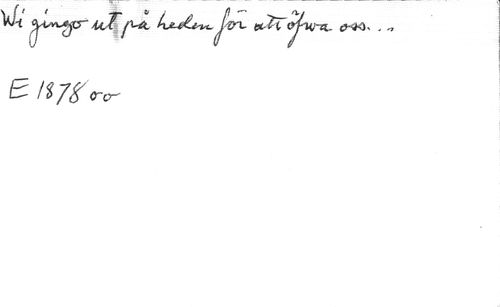 Wi gingo ut på heden för att öfwa oss...
E 1878 oo